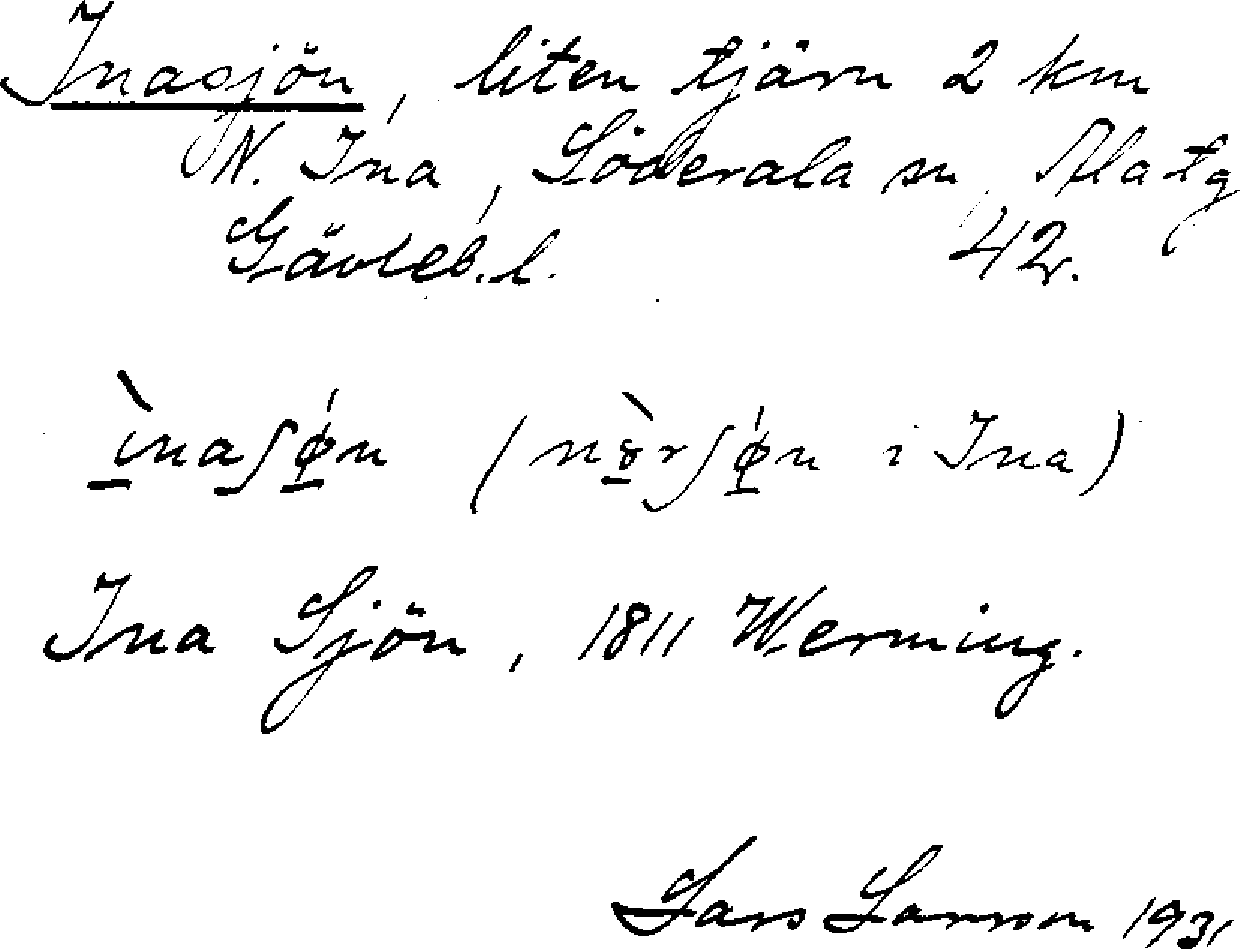 Inasjön, liten tjärn 2 km
N. Ina, Söderala sn, Ala tg
Gävleb. l. 42.
ìnaʃǿn (nɤ̀rʃǿn i Ina)
Ina Sjön, 1811 Werming.
Lars Larsson 1931